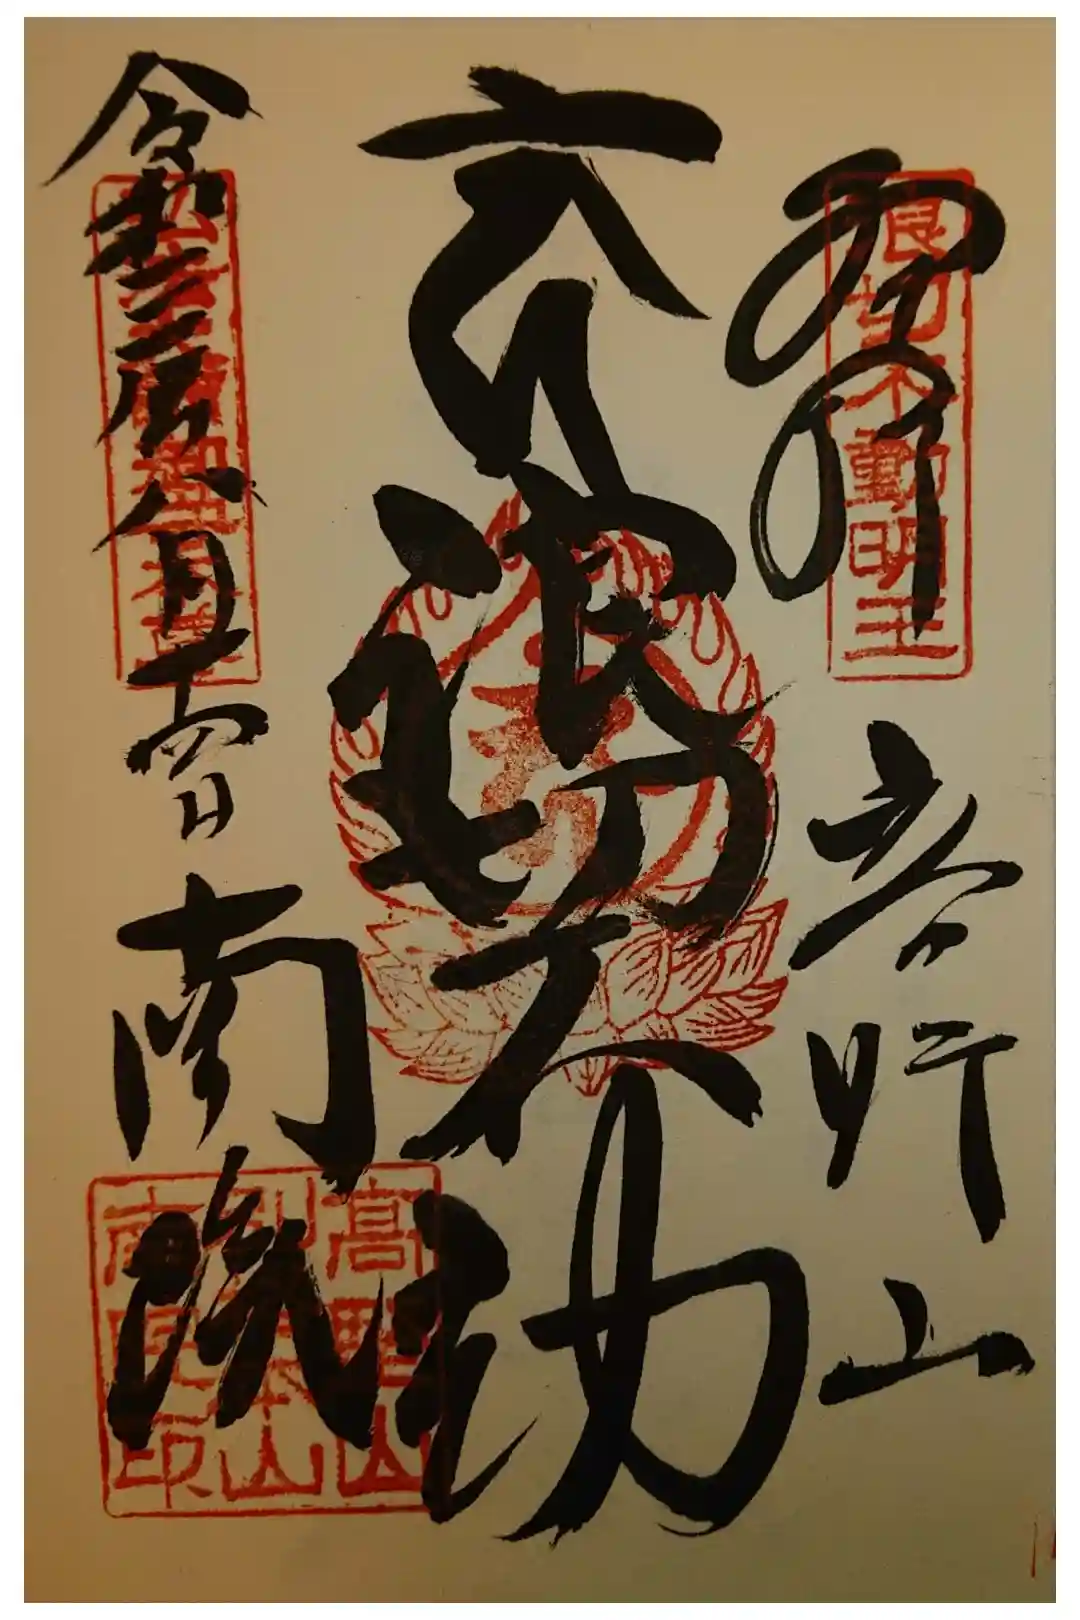 浪切不動明王
高野山
浪切不動
令和三年八月十四日
南院
高野山
別格本山
南院印